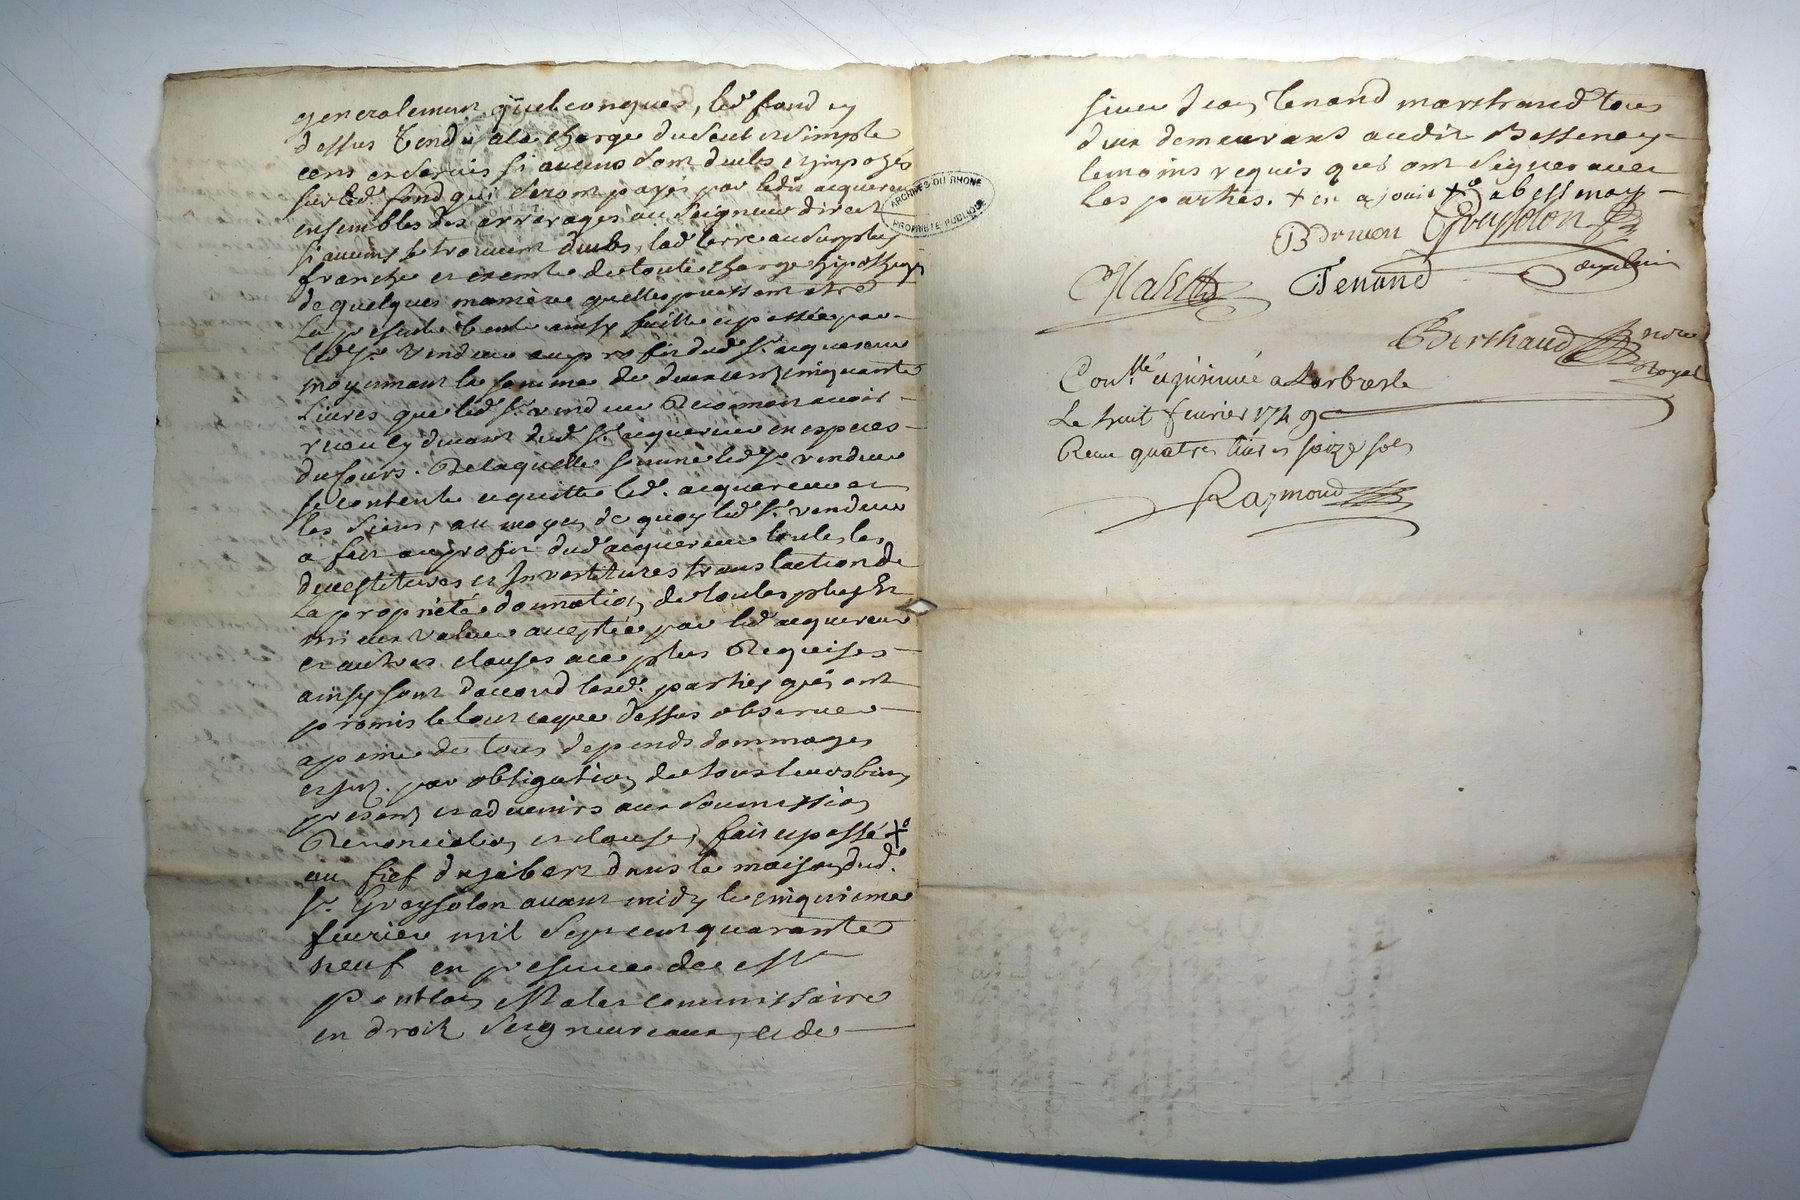 generalement quelconques, led. fond cy
dessus vendu a la charge du seul et simple
cens et servis si aucuns sont deubs et imposés
sur led. fond qui seront payés par ledit acquereur
ensembles des arrerages au seigneur direct
si aucuns se trouvent deubs, lad. terre au surplus
franche et exempte de toute charge hipotheque
de quelques manière quelles puissent etre
La presente vente ainsy faitte et passée par
led. sr. vendeur au profit dud. sr. acquereur
moyennant la somme de deux cent cinquante
Livres que led. sr. vendeur Reconnoit avoir
receu cy devant dud. sr. acquereur en especes
du cours. De laquelle somme led. sr. vendeur
se contente et quitte led. acquereur et
les siens, au moyen de quoy led. sr. vendeur
a fait au profit dud. acquereur toutes les
devestitures et Investitures translaction de
La propriété donnation de toutes plus et
mieux value acceptée par led. acquereur
et autres clauses a ce plus Requises
ainsy sont d'accord lesd. parties qui ont
promis le tout ce que dessus observer
a peine de tous depends dommages
et int. par obligation de tous leurs biens
presents et advenirs aux soumission
Renonciation et clause, fait et passé +
au fief du jibert dans la maison dud.
sr. Graysolon avant midy le cinquieme
fevrier mil sept cent quarante
neuf en presence de
Malet commissaire
en droit seigneuriaux, et de
sieur Jean Tenand marchand tous
deux demeurant audit Bessenay
temoins requis qui ont signer avec
les parties. + en ajout + a bessenay
Graysolon
Malet Tenand
Berthaud nore
royal
Conllé et insinué a Larbresle
Le huit fevrier 1749
Receu quatre livres saize sols
Raymond
ARCHIVES DU RHONE
PROPRIÉTÉ PUBLIQUE